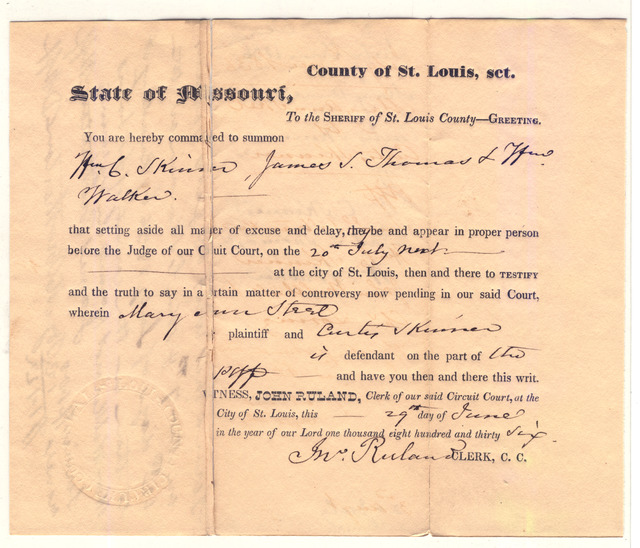 County of St. Louis, sct.
State of Missouri,
To the SHERIFF of St. Louis County—GREETING.
You are hereby comma ed to summon
Wm C. Skinner, James S. Thomas & Wm
Walker.
that setting aside all ma er of excuse and delay, they be and appear in proper person
before the Judge of our C uit Court, on the 20th July next
at the city of St. Louis, then and there to TESTIFY
and the truth to say in a rtain matter of controversy now pending in our said Court,
wherein Mary Ann Steel
plaintiff and Curtis Skinner
is defendant on the part of the
plff and have you then and there this writ.
TNESS, JOHN RULAND, Clerk of our said Circuit Court, at the
City of St. Louis, this 29th day of June
in the year of our Lord one thousand eight hundred and thirty six.
Jno. Ruland CLERK, C. C.